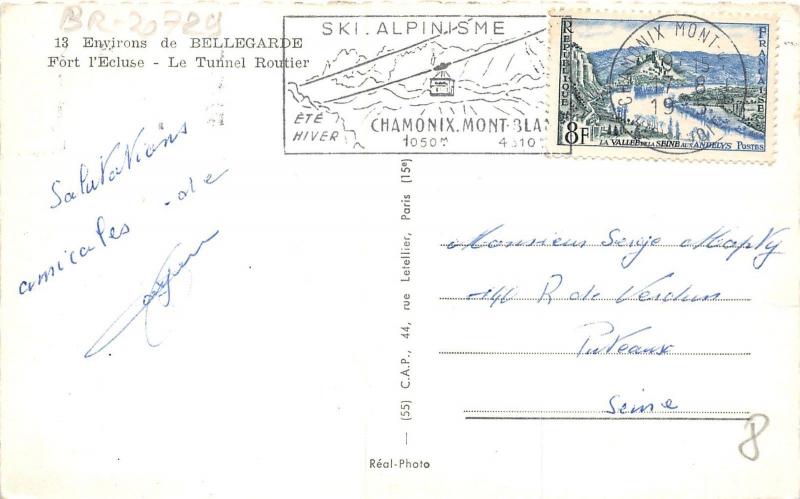 BR-20729
13 Environs de BELLEGARDE
Fôrt l'Ecluse - Le Tunnel Routier
SKI. ALPINISME
ÉTÉ
HIVER
CHAMONIX. MONT-BLANC
1050M 4810
CHAMONIX MONT-
REPUBLIQUE
FRANÇAISE
8F
LA VALLÉE DE LA SEINE AUX ANDELYS POSTES
Salutations
amicales de
(55) C.A.P., 44, rue Letellier, Paris (15e)
Monsieur Serge
140 R de Verdun
Puteaux
Seine
8
Réal-Photo